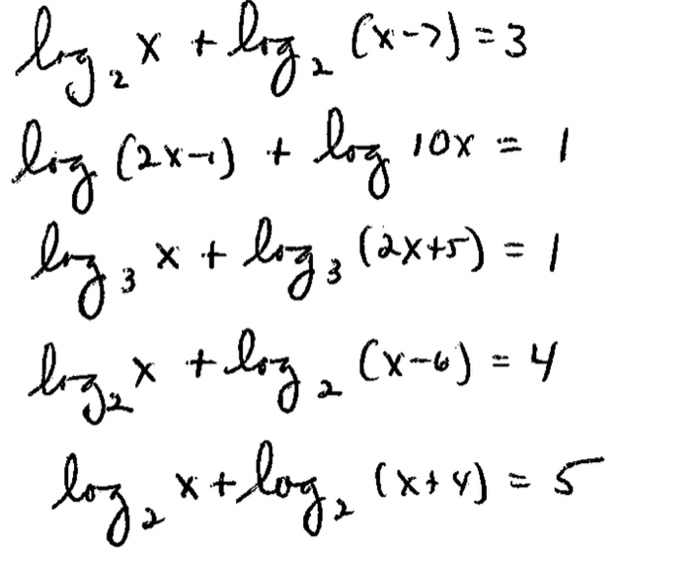 log₂ x + log₂ (x-7) = 3
log (2x-1) + log 10x = 1
log₃ x + log₃ (2x+5) = 1
log₂ x + log₂ (x-6) = 4
log₂ x + log₂ (x+4) = 5